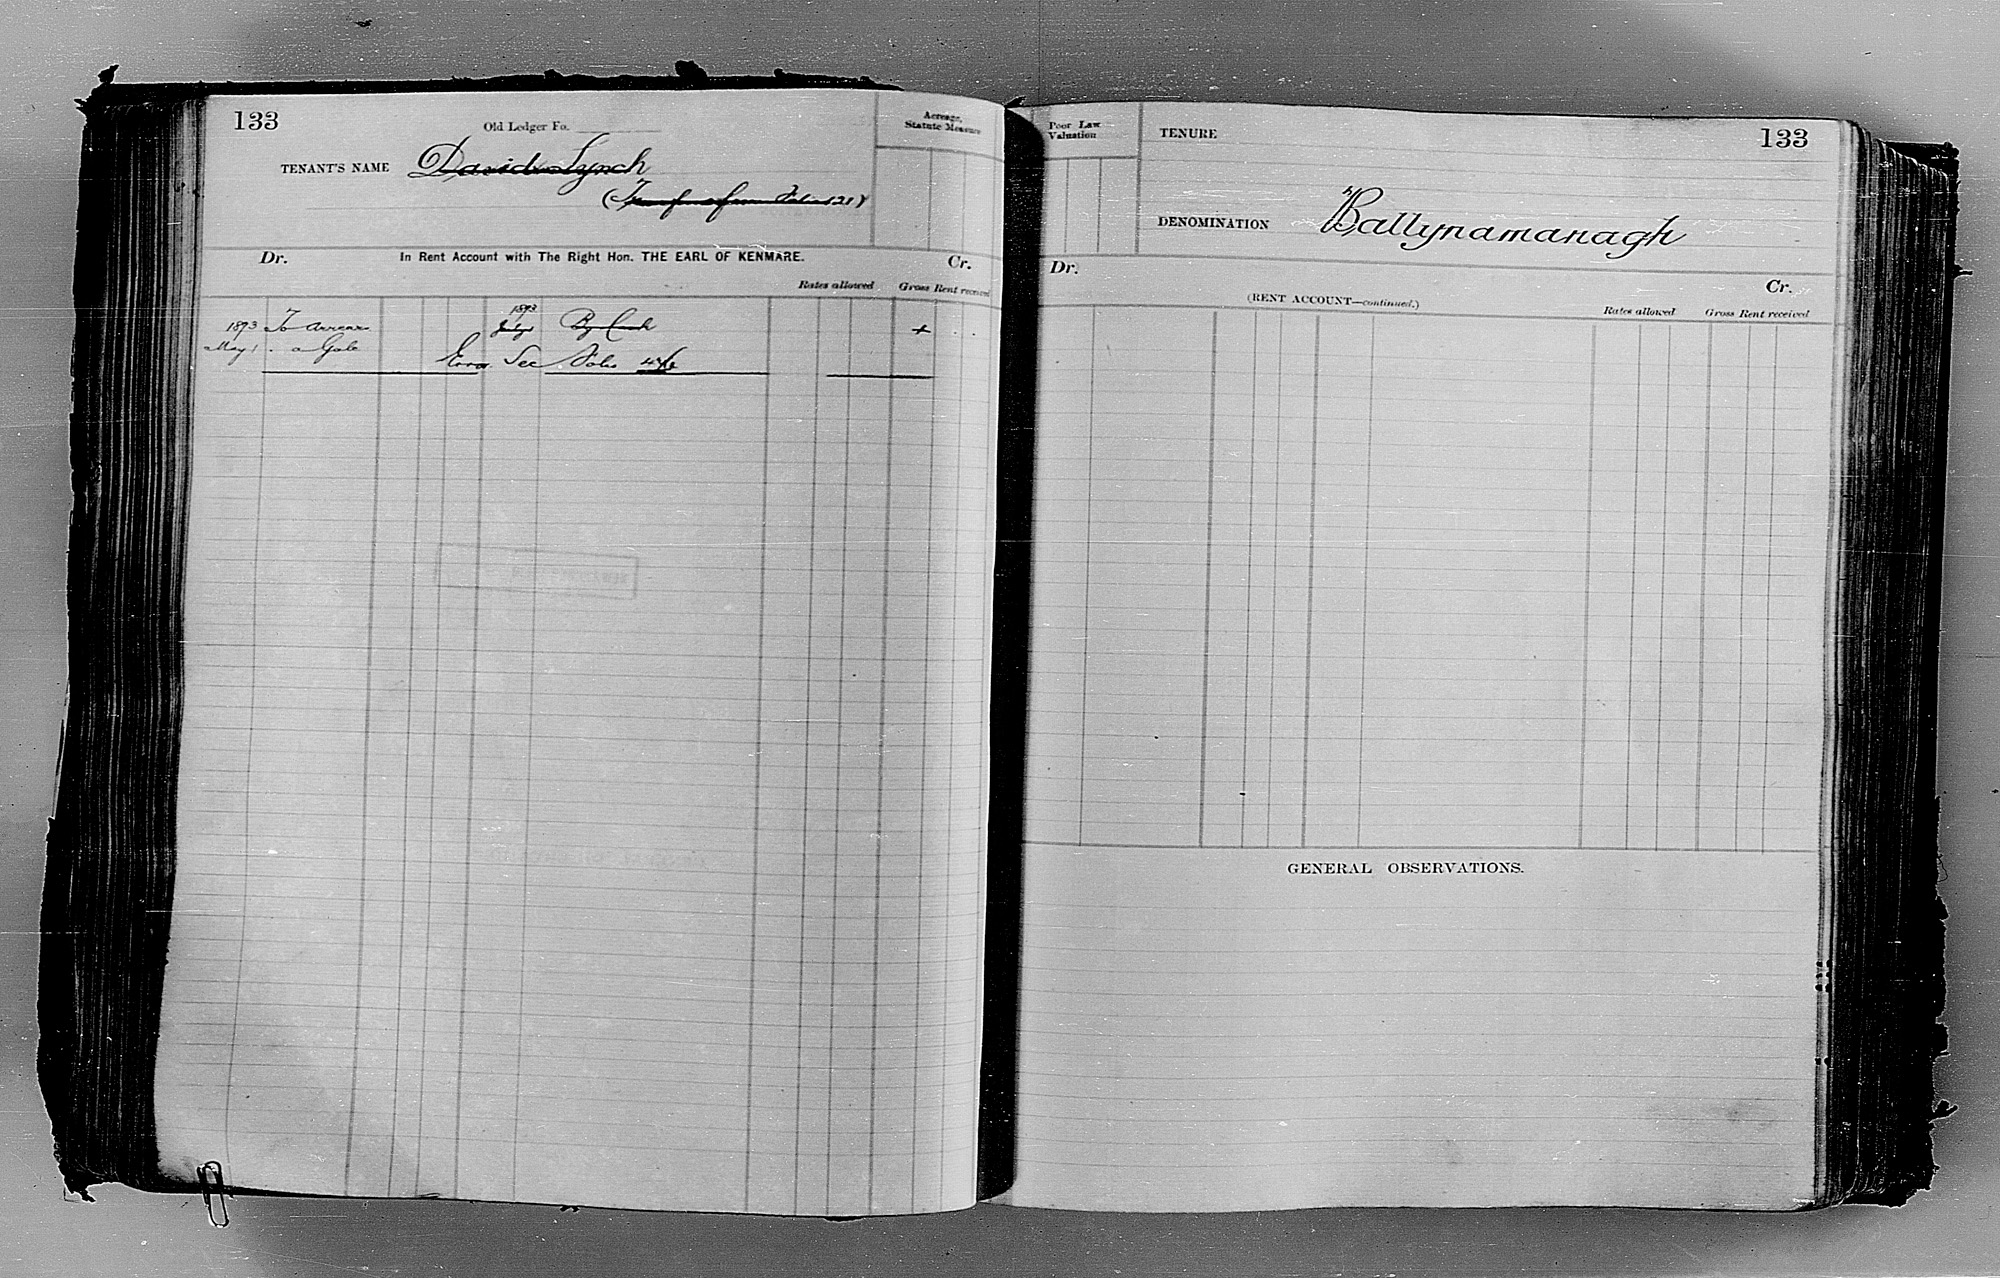 133
Old Ledger Fo.
Acreage,
Statute Measure
TENANT'S NAME David Lynch
(Transfer from Folio 121)
Dr. In Rent Account with The Right Hon. THE EARL OF KENMARE. Cr.
Rates allowed Gross Rent received
1893
1893 To Arrears July By Cash +
May 1 . a Gale
Error See Folio
Poor Law
Valuation
TENURE 133
DENOMINATION Ballynamanagh
Dr. Cr.
(RENT ACCOUNT—continued.)
Rates allowed Gross Rent received
GENERAL OBSERVATIONS.